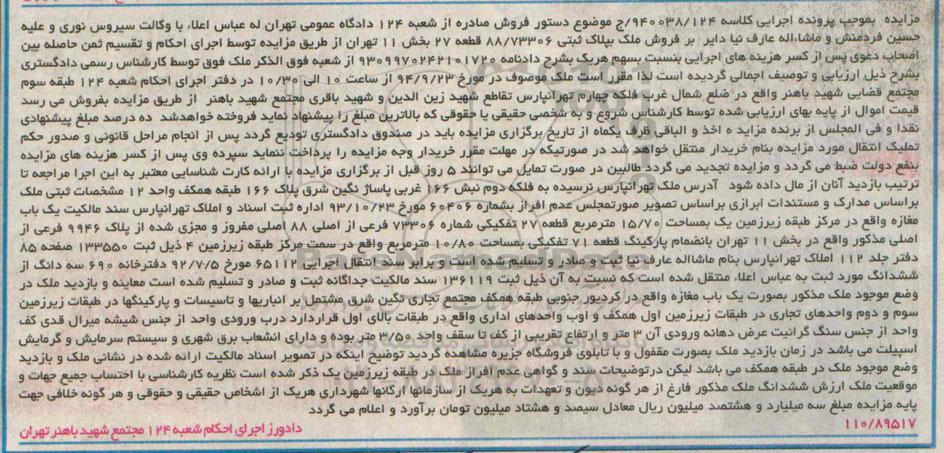 مزایده بموجب پرونده اجرایی کلاسه ۹۴۰۰۳۸/۱۲۴/ج موضوع دستور فروش صادره از شعبه ۱۲۴ دادگاه عمومی تهران له عباس اعلاء با وکالت سیروس نوری و علیه
حسین فردمنش و ماشاءاله عارف نیا دایر بر فروش ملک بپلاک ثبتی ۸۸/۷۳۳۰۶ قطعه ۲۷ بخش ۱۱ تهران از طریق مزایده توسط اجرای احکام و تقسیم ثمن حاصله بین
اصحاب دعوی پس از کسر هزینه های اجرایی بنسبت بسهم هریک بشرح دادنامه ۹۳۰۹۹۷۰۲۴۲۱۰۱۷۲۰ از شعبه فوق الذکر ملک فوق توسط کارشناس رسمی دادگستری
بشرح ذیل ارزیابی و توصیف اجمالی گردیده است لذا مقرر است ملک موصوف در مورخ ۹۴/۹/۲۳ از ساعت ۱۰ الی ۱۰/۳۰ در دفتر اجرای احکام شعبه ۱۲۴ طبقه سوم
مجتمع قضایی شهید باهنر واقع در ضلع شمال غرب فلکه چهارم تهرانپارس تقاطع شهید زین الدین و شهید باقری مجتمع شهید باهنر از طریق مزایده بفروش می رسد
قیمت اموال از پایه بهای ارزیابی شده توسط کارشناس شروع و به شخصی حقیقی یا حقوقی که بالاترین مبلغ را پیشنهاد نماید فروخته خواهدشد ده درصد مبلغ پیشنهادی
نقدا و فی المجلس از برنده مزایده اخذ و الباقی ظرف یکماه از تاریخ برگزاری مزایده باید در صندوق دادگستری تودیع گردد پس از انجام مراحل قانونی و صدور حکم
تملیک انتقال مورد مزایده بنام خریدار منتقل خواهد شد در صورتیکه در مهلت مقرر خریدار وجه مزایده را پرداخت ننماید سپرده وی پس از کسر هزینه های مزایده
بنفع دولت ضبط می گردد و مزایده تجدید می گردد طالبین در صورت تمایل می توانند ۵ روز قبل از برگزاری مزایده با ارائه کارت شناسایی معتبر به این اجرا مراجعه تا
ترتیب بازدید آنان از مال داده شود آدرس ملک تهرانپارس نرسیده به فلکه دوم نبش ۱۶۶ غربی پاساژ نگین شرق پلاک ۱۶۶ طبقه همکف واحد ۱۲ مشخصات ثبتی ملک
براساس مدارک و مستندات ابرازی براساس تصویر صورتمجلس عدم افراز بشماره ۶۰۴۰۶ مورخ ۹۳/۱۰/۲۳ اداره ثبت اسناد و املاک تهرانپارس سند مالکیت یک باب
مغازه واقع در مرکز طبقه زیرزمین یک بمساحت ۱۵/۷۰ مترمربع قطعه ۲۷ تفکیکی شماره ۷۳۳۰۶ فرعی از اصلی ۸۸ اصلی مفروز و مجزی شده از پلاک ۹۹۴۶ فرعی از
اصلی مذکور واقع در بخش ۱۱ تهران بانضمام پارکینگ قطعه ۷۱ تفکیکی بمساحت ۱۰/۸۰ مترمربع واقع در سمت مرکز طبقه زیرزمین ۴ ذیل ثبت ۱۳۳۵۵۰ صفحه ۸۵
دفتر جلد ۱۱۲ املاک تهرانپارس بنام ماشااله عارف نیا ثبت و صادر و تسلیم شده است و برابر سند انتقال اجرایی ۶۵۱۱۲ مورخ ۹۲/۷/۵ دفترخانه ۶۹۰ سه دانگ از
ششدانگ مورد ثبت به عباس اعلاء منتقل شده است که نسبت به آن ذیل ثبت ۱۳۶۱۱۹ سند مالکیت جداگانه ثبت و صادر و تسلیم شده است معاینه و بازدید ملک در
وضع موجود ملک مذکور بصورت یک باب مغازه واقع در کردیور جنوبی طبقه همکف مجتمع تجاری نگین شرق مشتمل بر انباریها و تاسیسات و پارکینگها در طبقات زیرزمین
سوم و دوم واحدهای تجاری در طبقات زیرزمین اول همکف و اوب واحدهای اداری واقع در طبقات بالای اول قراردارد درب ورودی واحد از جنس شیشه میرال قدی کف
واحد از جنس سنگ گرانیت عرض دهانه ورودی آن ۳ متر و ارتفاع تقریبی از کف تا سقف واحد ۳/۵۰ متر بوده و دارای انشعاب برق شهری و سیستم سرمایش و گرمایش
اسپیلت می باشد در زمان بازدید ملک بصورت مقفول و با تابلوی فروشگاه جزیره مشاهده گردید توضیح اینکه در تصویر اسناد مالکیت ارائه شده در نشانی ملک و بازدید
وضع موجود ملک در طبقه همکف می باشد لیکن درتوضیحات سند و گواهی عدم افراز ملک در طبقه زیرزمین یک ذکر شده است نظریه کارشناسی با احتساب جمیع جهات و
موقعیت ملک ارزش ششدانگ ملک مذکور فارغ از هر گونه دیون و تعهدات به هریک از سازمانها ارگانها شهرداری هریک از اشخاص حقیقی و حقوقی و هر گونه خلافی جهت
پایه مزایده مبلغ سه میلیارد و هشتصد میلیون ریال معادل سیصد و هشتاد میلیون تومان برآورد و اعلام می گردد
۱۱۰/۸۹۵۱۷ دادورز اجرای احکام شعبه ۱۲۴ مجتمع شهید باهنر تهران